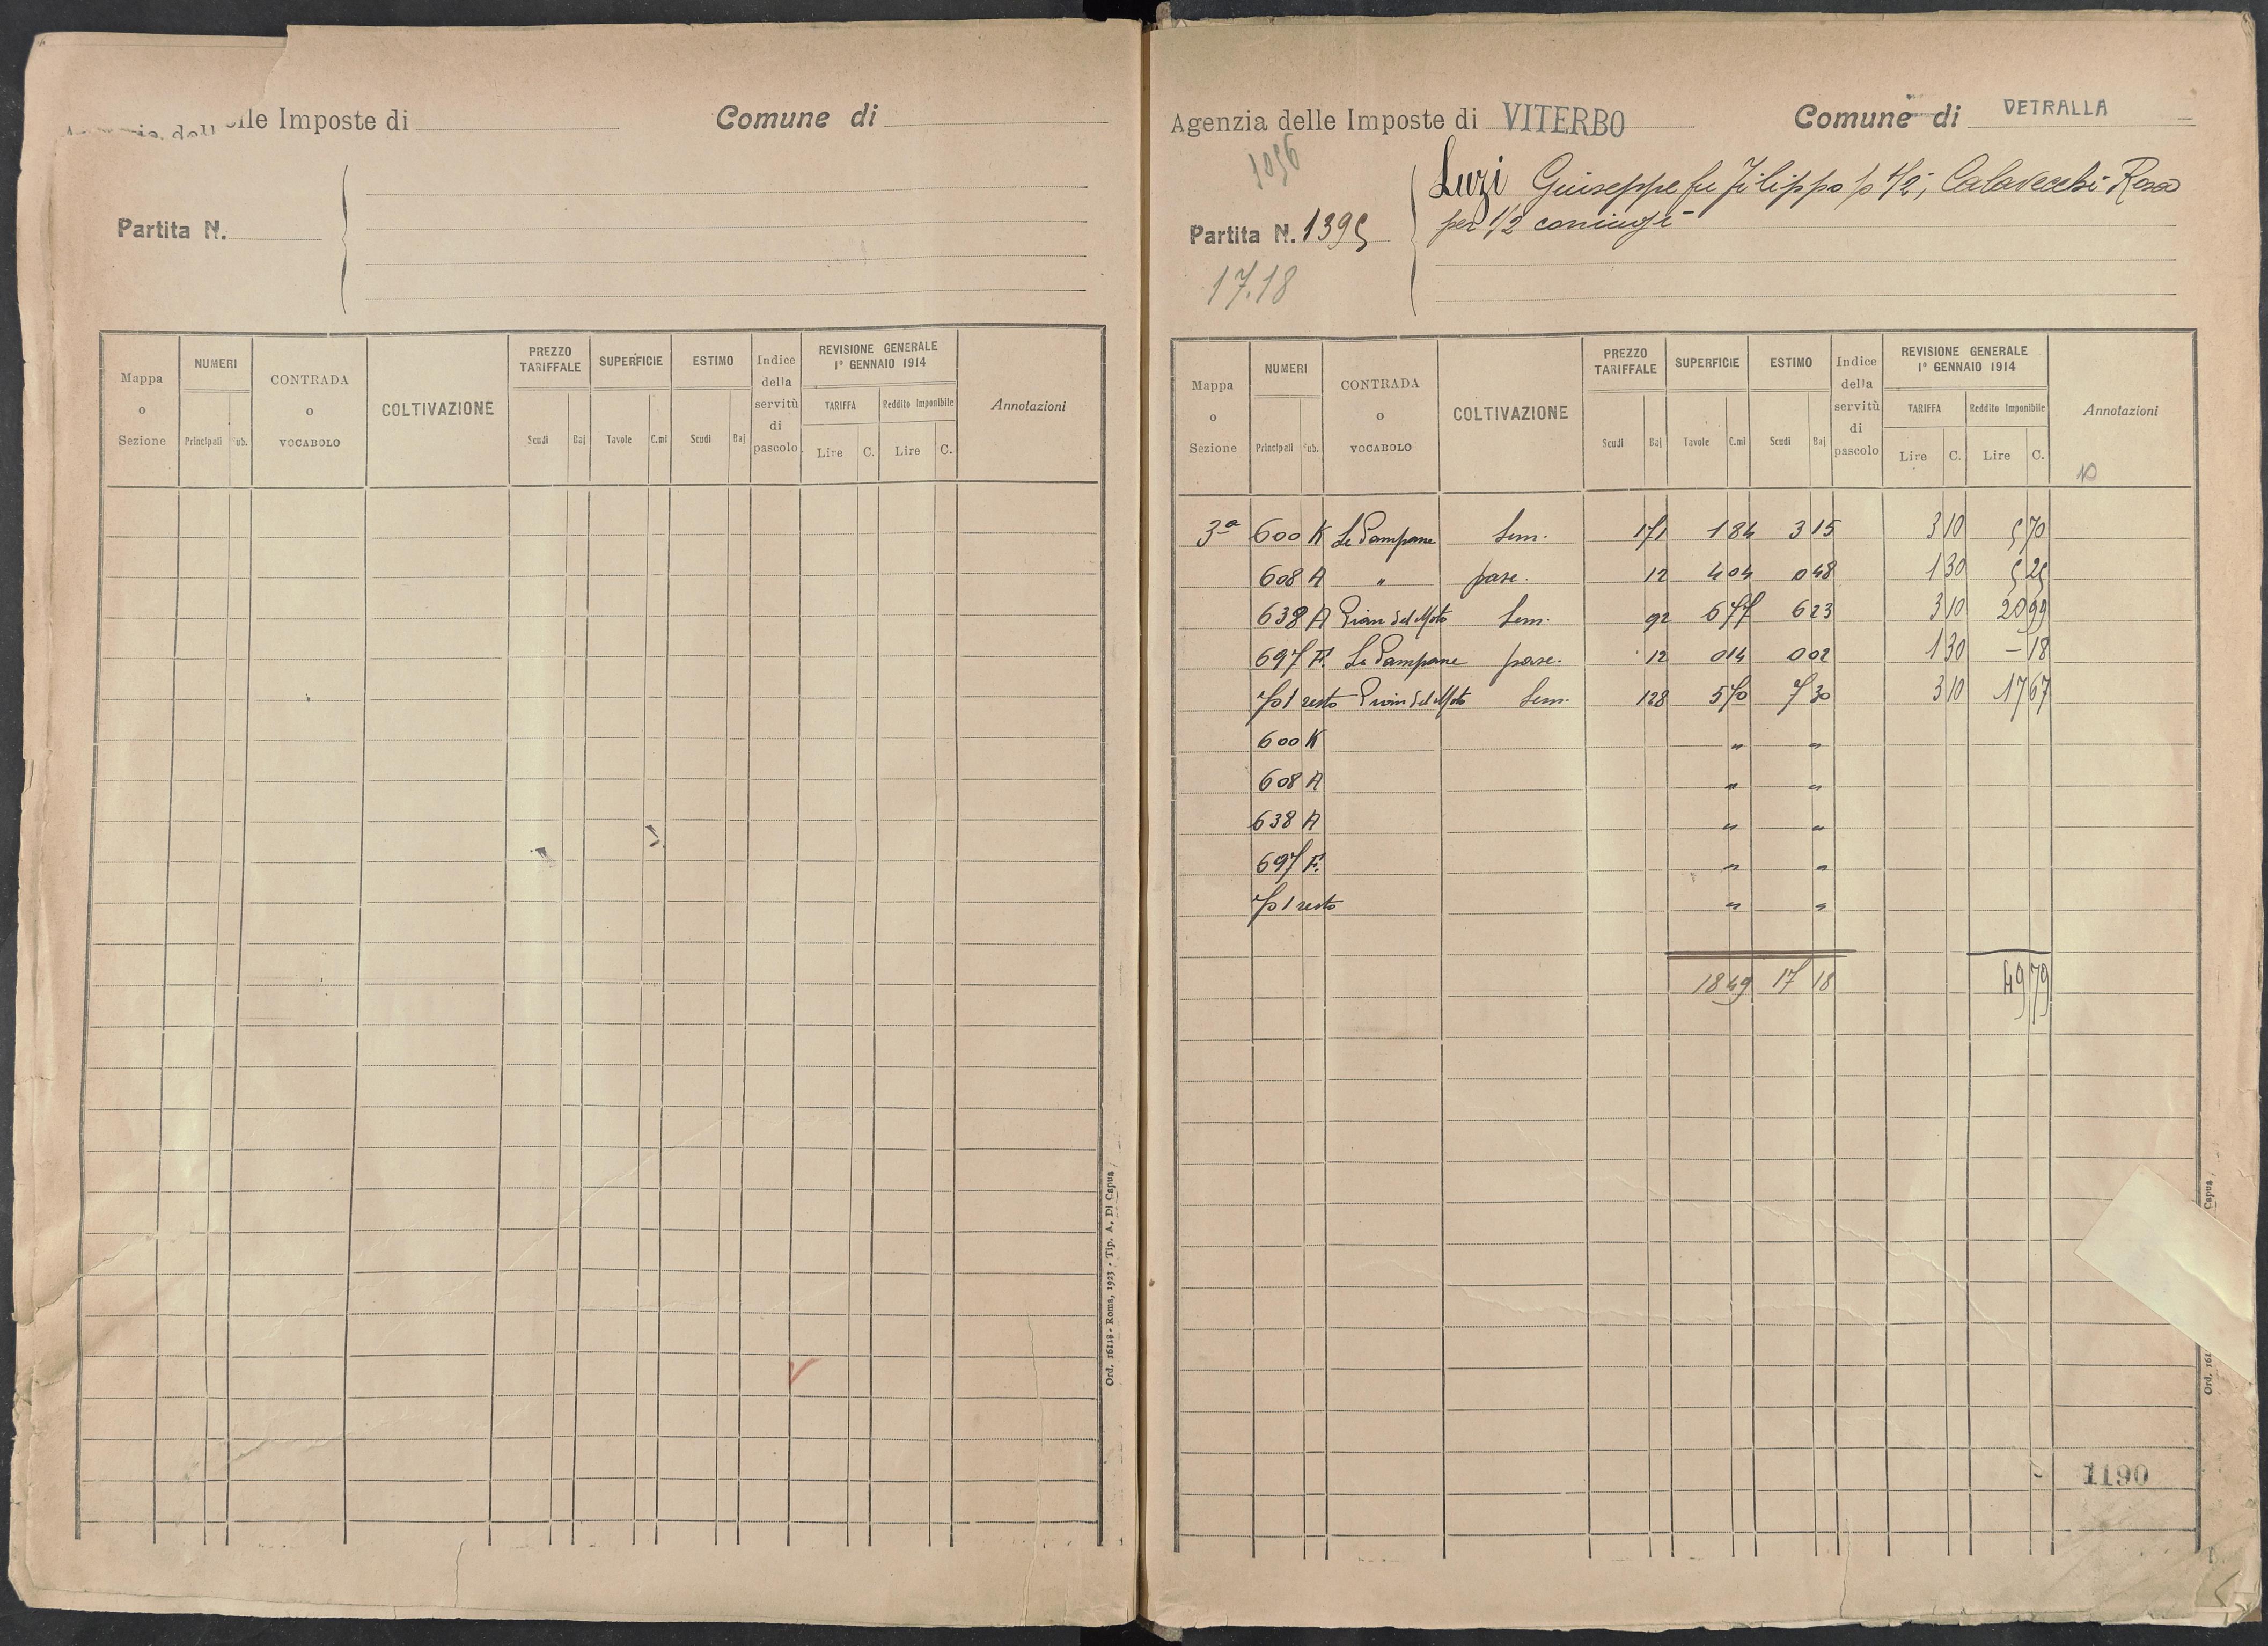 elle Imposte di Comune di
Partita N.
Mappa o Sezione NUMERI Principali Sub. CONTRADA O VOCABOLO COLTIVAZIONE PREZZO TARIFFALE Scudi Baj SUPERFICIE Tavole C.mi ESTIMO Scudi Baj Indice della servitù di pascolo REVISIONE GENERALE 1° GENNAIO 1914 TARIFFA Lire C. Reddito Imponibile Lire C. Annotazioni
Ord. 16118 - Roma, 1923 - Tip. A. Di Capua
Agenzia delle Imposte di VITERBO Comune di VETRALLA
1056
Luzi Giuseppe fu Filippo p 1/2; Calavecchi Rosa
Partita N. 1395 per 1/2 coniugi
17.18
Mappa o Sezione NUMERI Principali Sub. CONTRADA O VOCABOLO COLTIVAZIONE PREZZO TARIFFALE Scudi Baj SUPERFICIE Tavole C.mi ESTIMO Scudi Baj Indice della servitù di pascolo REVISIONE GENERALE 1° GENNAIO 1914 TARIFFA Lire C. Reddito Imponibile Lire C. Annotazioni
3a 600 K Le Pampane Sem. 171 1 84 3 15 3 10 5 70
608 A " pasc. 12 4 04 0 48 1 30 5 25
638 A Pian del Sem. 92 6 77 6 23 3 10 20 99
697 F. Le Pampane pasc. 12 0 14 0 02 1 30 - 18
701 resto Pian del Sem. 128 5 70 7 30 3 10 17 67
600 K " "
608 A " "
638 A " "
697 F. " "
701 resto " "
18 49 17 18 49 79
1190
Capua
Ord. 161